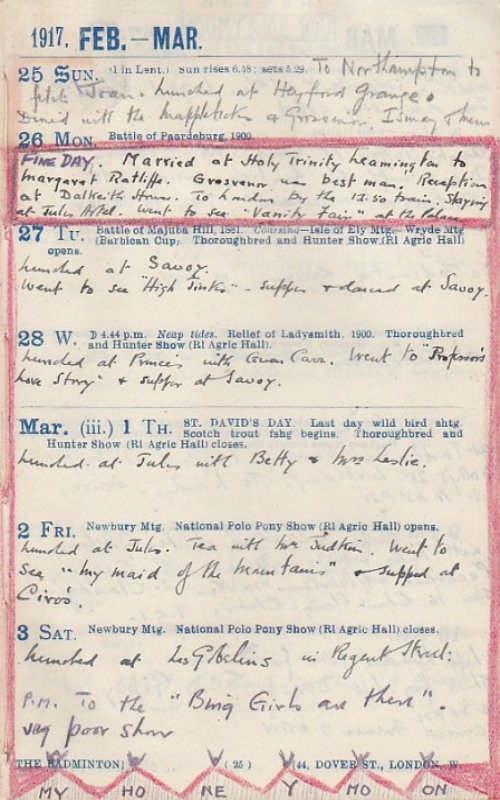 1917. FEB.—MAR.
25 SUN. (1 in Lent.) Sun rises 6.58; sets 5.29. To Northampton to
fetch Joan. Lunched at Heyford Grange.
Dined with the & Grosvenor Ismay & them
26 MON. Battle of Paardeburg, 1900.
FINE DAY. Married at Holy Trinity Leamington to
Margaret Ratliffe. Grosvenor was best man. Reception
at Dalkeith House. To London by the 12.50 train. Staying
at Jules Hotel. Went to see "Vanity Fair" at the Palace
27 TU. Battle of Majuba Hill, 1881. Coursing—Isle of Ely Mtg—Wryde Mtg
(Barbican Cup). Thoroughbred and Hunter Show (Rl Agric Hall)
opens.
Lunched at Savoy.
Went to see "High Jinks" - supper & danced at Savoy.
28 W. D 4.44 p.m. Neap tides. Relief of Ladysmith. 1900. Thoroughbred
and Hunter Show (Rl Agric Hall).
Lunched at Princes with Carr. Went to "Professor's
Love Story" & supper at Savoy.
Mar. (iii.) 1 TH. ST. DAVID'S DAY. Last day wild bird shtg.
Scotch trout fshg begins. Thoroughbred and
Hunter Show (Rl Agric Hall) closes.
Lunched at Jules with Betty & Mrs Leslie.
2 FRI. Newbury Mtg. National Polo Pony Show (Rl Agric Hall) opens.
Lunched at Jules. Tea with Mrs Judkin. Went to
see "My maid of the Mountains" & supped at
Ciro's.
3 SAT. Newbury Mtg. National Polo Pony Show (Rl Agric Hall) closes.
Lunched at Les Gobelins in Regent Street.
P.M. To the "Bing Girls are there".
Very poor show
THE BADMINTON] (25) [44, DOVER ST., LONDON, W.
MY HO NE Y MO ON